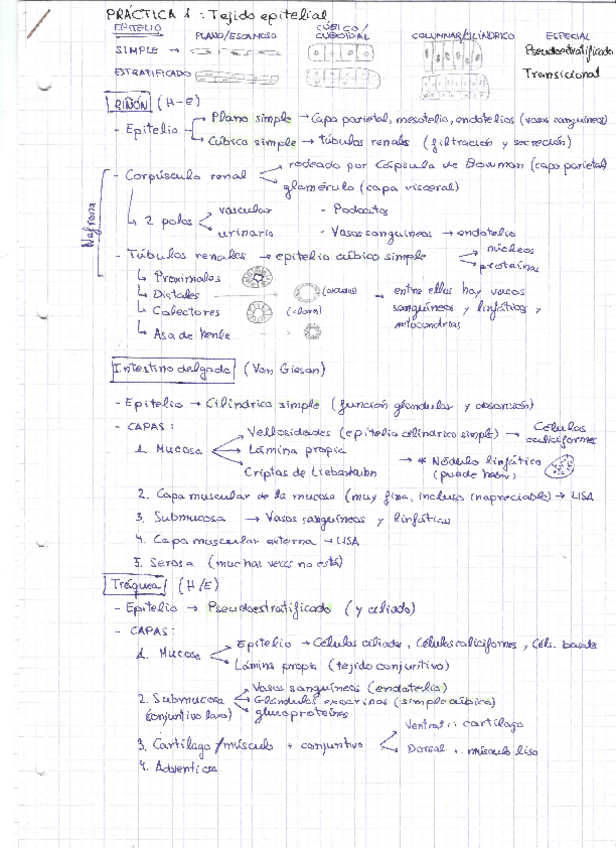 PRÁCTICA 1: Tejido epitelial
EPITELIO PLANO/ESCAMOSO CÚBICO/CUBOIDAL COLUMNAR/CILÍNDRICO ESPECIAL
SIMPLE → Pseudoestratificado
ESTRATIFICADO Transicional
RIÑÓN (H-E)
- Epitelio → Plano simple → Capa parietal, mesotelio, endotelios (vasos sanguíneos)
→ Cúbico simple → túbulos renales (filtración y secreción)
Nefrona
- Corpúsculo renal → rodeado por Cápsula de Bowman (capa parietal)
→ glomérulo (capa visceral)
↳ 2 polos → vascular - Podocitos
→ urinario - Vasos sanguíneos → endotelio
- Túbulos renales → epitelio cúbico simple → núcleos
→ proteínas
↳ Proximales
↳ Distales → entre ellos hay vasos
↳ Colectores (claro) sanguíneos y linfáticos y
↳ Asa de Henle mitocondrias
Intestino delgado (Van Gieson)
- Epitelio → Cilíndrico simple (función glandular y absorción)
- CAPAS:
1. Mucosa → Vellosidades (epitelio cilíndrico simple) → Células caliciformes
→ Lámina propia → * Nódulo linfático
→ Criptas de Lieberkühn (puede haber)
2. Capa muscular de la mucosa (muy fina, incluso inapreciable) → LISA
3. Submucosa → Vasos sanguíneos y linfáticos
4. Capa muscular externa → LISA
5. Serosa (muchas veces no está)
Tráquea (H/E)
- Epitelio → Pseudoestratificado (y ciliado)
- CAPAS:
1. Mucosa → Epitelio → Células ciliadas, Células caliciformes, Céls. basales
→ Lámina propia (tejido conjuntivo)
2. Submucosa → Vasos sanguíneos (endotelio)
(conjuntivo laxo) → Glándulas exocrinas (simple cúbico)
→ glucoproteínas
3. Cartílago/músculo + conjuntivo → Ventral: cartílago
→ Dorsal: músculo liso
4. Adventicia